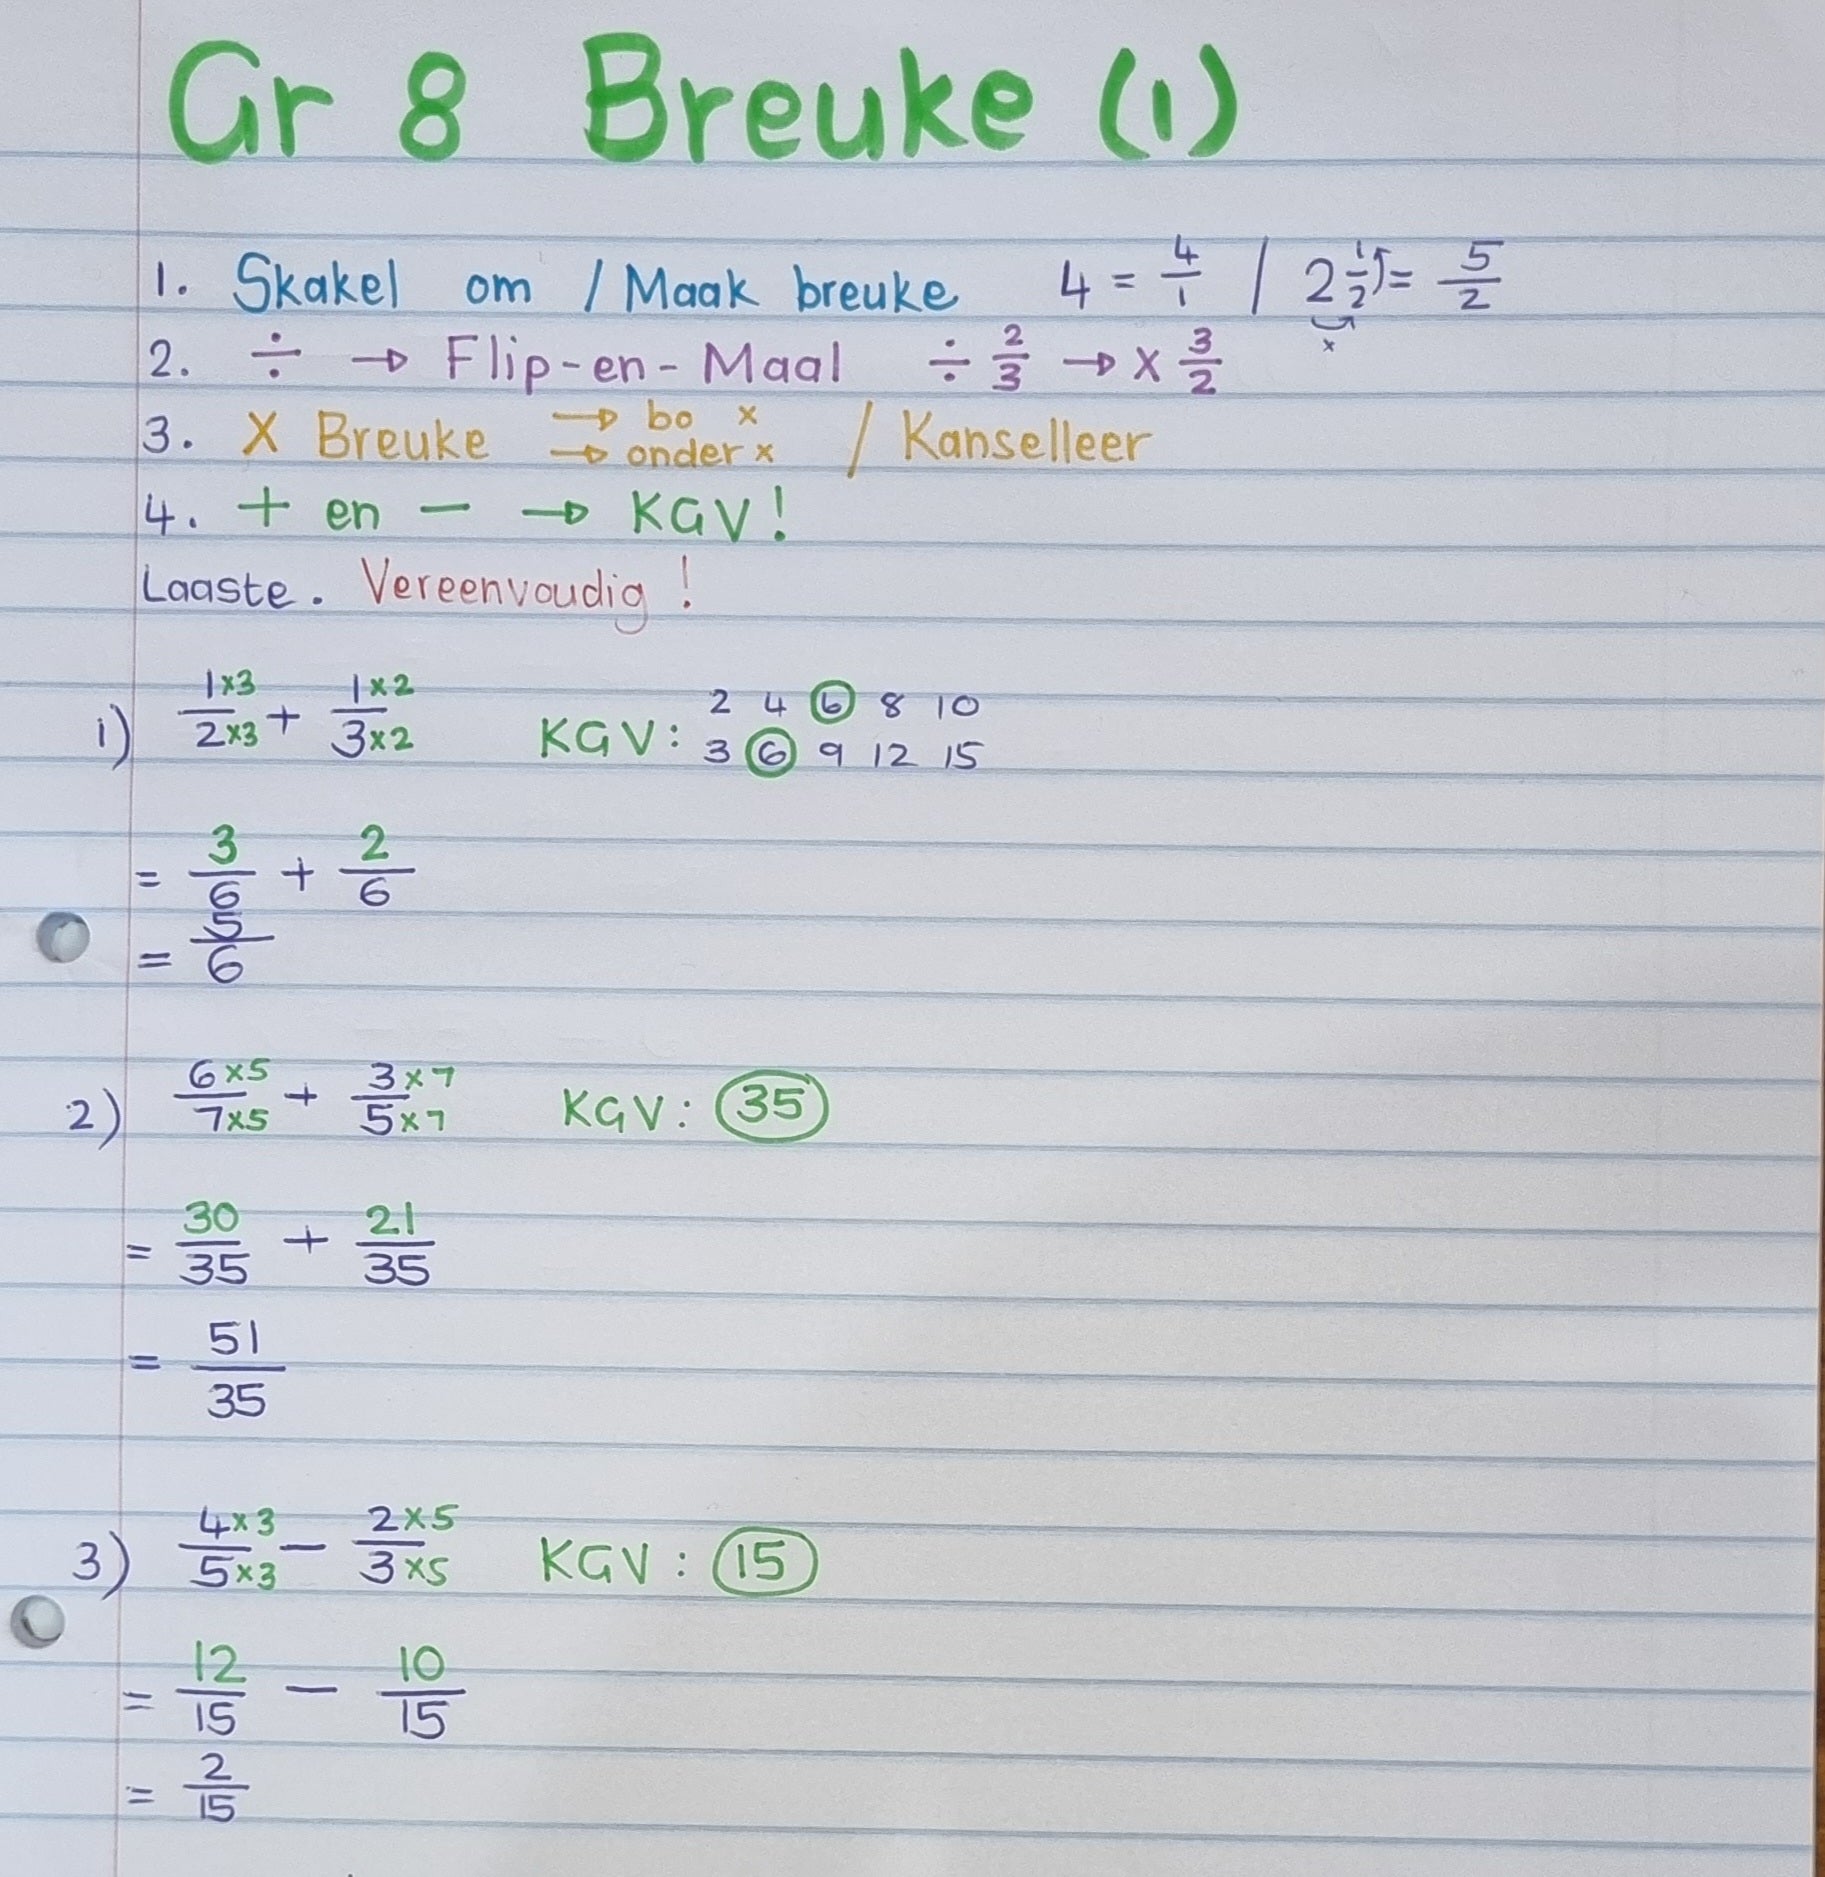 Gr 8 Breuke (1)
1. Skakel om / Maak breuke 4 = 4/1 / 2 1/2 = 5/2
x
2. ÷ → Flip-en-Maal ÷ 2/3 → x 3/2
3. X Breuke → bo x / Kanselleer
→ onder x
4. + en - → KGV!
Laaste. Vereenvoudig!
1) 1x3/2x3 + 1x2/3x2 KGV: 2 4 6 8 10
3 6 9 12 15
= 3/6 + 2/6
= 5/6
2) 6x5/7x5 + 3x7/5x7 KGV: 35
= 30/35 + 21/35
= 51/35
3) 4x3/5x3 - 2x5/3x5 KGV: 15
= 12/15 - 10/15
= 2/15